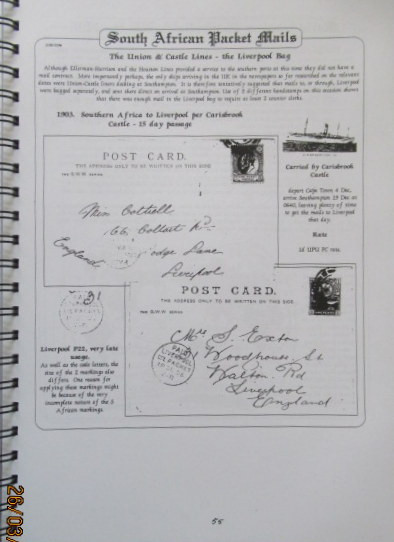 South African Packet Mails
The Union & Castle Lines - the Liverpool Bag
Although Ellerman-Harrison and the Houston Lines provided a service to the southern ports at this time they did not have a
mail contract. More importantly perhaps, the only ships arriving in the UK in the newspapers so far researched on the relevant
dates were Union-Castle liners docking at Southampton. It is therefore tentatively suggested that mails to, or through, Liverpool
were bagged separately, and sent there direct on arrival at Southampton. Use of 2 different handstamps on this occasion shows
that there was enough mail in the Liverpool bag to require at least 2 counter clerks.
1903. Southern Africa to Liverpool per Carisbrook
Castle - 15 day passage
POST CARD.
THE ADDRESS ONLY TO BE WRITTEN ON THIS SIDE
Miss
66
Lane
England
Liverpool
Carried by Carisbrook
Castle
depart Cape Town 4 Dec,
arrive Southampton 19 Dec at
0640, leaving plenty of time
to get the mails to Liverpool
that day.
Rate
1d UPU PC rate.
POST CARD.
THE ADDRESS ONLY TO BE WRITTEN ON THIS SIDE.
Mrs S Exton
Woodhouse St
Walton Rd
Liverpool
England
PAID
LIVERPOOL
US PACKET
Liverpool P22, very late
usage.
As well as the code letters, the
size of the 2 markings also
differs. One reason for
applying these markings might
be because of the very
incomplete nature of the S
African markings.
56